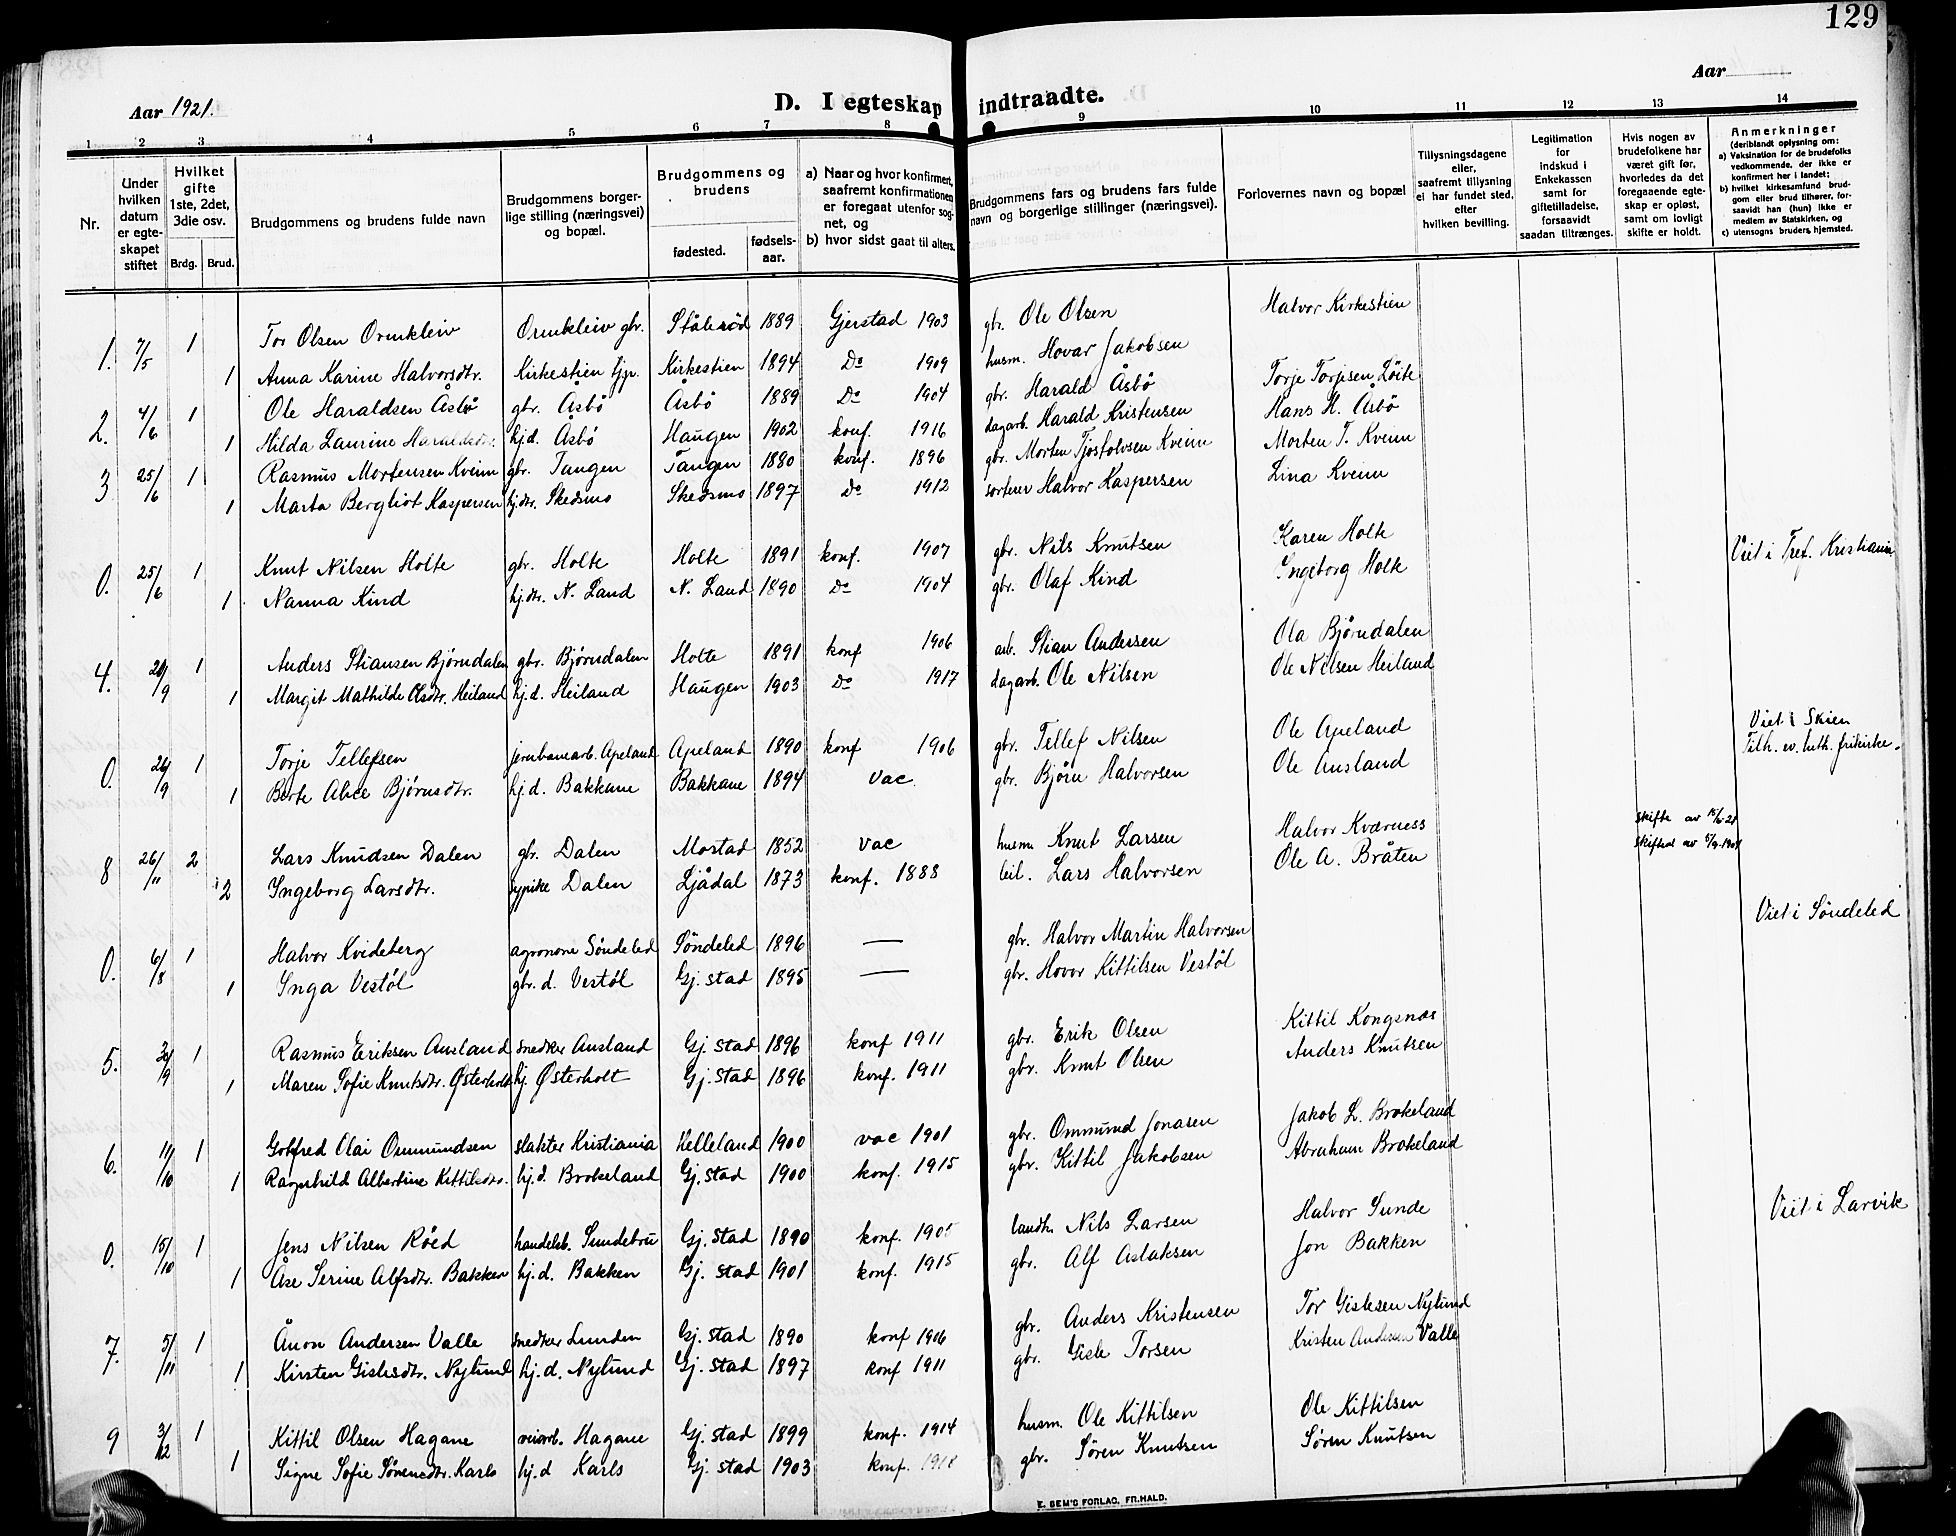 129
Aar 1921.
D. I egteskap indtraadte.
Aar
1 2 3 4 5 6 7 8 9 10 11 12 13 14
Nr.
Under hvilken datum er egteskapet stiftet
Hvilket gifte 1ste, 2det, 3die osv.
Brdg. Brud.
Brudgommens og brudens fulde navn
Brudgommens borgerlige stilling (næringsvei) og bopæl.
Brudgommens og brudens
fødested.
fødselsaar.
a) Naar og hvor konfirmert, saafremt konfirmationen er foregaat utenfor sognet, og
b) hvor sidst gaat til alters.
Brudgommens fars og brudens fars fulde navn og borgerlige stillinger (næringsvei).
Forlovernes navn og bopæl
Tillysningsdagene eller, saafremt tillysning ei har fundet sted, efter hvilken bevilling.
Legitimation for indskud i Enkekassen samt for giftetilladelse, forsaavidt saadan tiltrænges.
Hvis nogen av brudefolkene har været gift før, hvorledes da det foregaaende egteskap er opløst, samt om lovligt skifte er holdt.
Anmerkninger (deriblandt oplysning om:
a) Vaksination for de brudefolks vedkommende, der ikke er konfirmert her i landet;
b) hvilket kirkesamfund brudgom eller brud tilhører, forsaavidt han (hun) ikke er medlem av Statskirken, og
c) utensogns bruders hjemsted.
1. 7/5 1 Tor Olsen Ormkleiv Ormkleiv gbr. Stålerød 1889 Gjerstad 1903 gbr. Ole Olsen Halvor Kirkestien
1 Anna Karine Halvorsdtr. Kirkestien tjp. Kirkestien 1894 Do 1909 husm. Hovar Jakobsen
2. 4/6 1 Ole Haraldsen Åsbø gbr. Åsbø Åsbø 1889 Do 1904 gbr. Harald Åsbø Torje Torjisen Löite
1 Hilda Laurine Haraldsdtr. hj.d. Åsbø Haugen 1902 konf. 1916 dagarb. Harald Kristensen Hans H. Åsbø
3 25/6 1 Rasmus Mortensen Kveim gbr. Tangen Tangen 1880 konf. 1896 gbr. Morten Tjostolvsen Kveim Morten T. Kveim
1 Marta Bergliot Kaspersen hj.dtr. Skedsmo Skedsmo 1897 Do 1912 sorterer Halvor Kaspersen Lina Kveim
0. 25/6 1 Knut Nilsen Holte gbr. Holte Holte 1891 konf. 1907 gbr. Nils Knutsen Karen Holte Viet i Tref. Kristiania
1 Nanna Kind hj.dtr. N. Land N. Land 1890 Do 1904 gbr. Olaf Kind Ingeborg Holte
4. /9 1 Anders Stiansen Bjørndalen gbr. Bjørndalen Holte 1891 konf 1906 arb. Stian Andersen Ola Bjørndalen
1 Margit Mathilde Olsdtr. Heiland hj.d. Heiland Haugen 1903 Do 1917 dagarb. Ole Nilsen Ole Nilsen Heiland
0. /9 1 Torje Tellefsen jernbanearb. Apeland Apeland 1890 konf 1906 gbr. Tellef Nilsen Ole Apeland Viet i Skien
1 Berte Alice Bjørnsdtr. hj.d. Bakkane Bakkane 1894 vac. gbr. Bjørn Halvorsen Ole Ausland Tilh. ev. luth. frikirke.
8 26/11 2 Lars Knudsen Dalen gbr. Dalen Mostad 1852 vac husm Knut Larsen Halvor Kværness skifte av 15/6-21
2 Ingeborg Larsdtr. sypike Dalen Ljådal 1873 konf. 1888 leil. Lars Halvorsen Ole A. Bråten
0. 6/8 1 Halvor Kvideberg agronom Søndeled Søndeled 1896 — gbr. Halvor Martin Halvorsen Viet i Søndeled
1 Inga Vestøl gbr. d. Vestøl Gj.stad 1895 — gbr. Hovor Kittilsen Vestøl
5. /9 1 Rasmus Eriksen Ausland snedker Ausland Gj.stad 1896 konf 1911 gbr. Erik Olsen Kittil Kongsnæs
1 Maren Sofie Knutsdtr. Østerholt hj. Østerholt Gj.stad 1896 konf. 1911 gbr. Knut Olsen Anders Knutsen
6. 11/10 1 Gotfred Olai Ommundsen slakter Kristiania Helleland 1900 vac 1901 gbr. Ommund Jonasen Jakob L. Brokeland
1 Ragnhild Albertine Kittilsdtr. hj.d. Brokeland Gj.stad 1900 konf. 1915 gbr. Kittil Jakobsen Abraham Brokeland
0. 15/10 1 Jens Nilsen Røed handelsb. Sundebru Gj.stad 1890 konf. 1905 landh. Nils Larsen Halvor Sunde Viet i Larvik
1 Åse Serine Alfsdtr. Bakken hj.d. Bakken Gj. stad 1901 konf. 1915 gbr. Alf Aslaksen Jon Bakken
7. 5/11 1 Ånon Andersen Valle snedker Lunden Gj.stad 1890 konf 1906 gbr. Anders Kristensen Tor Gislesen Nylund
1 Kirsten Gislesdtr. Nylund hj.d. Nylund Gj.stad 1897 konf 1911 gbr. Gisle Torsen Kristen Andersen Valle
9 3/12 1 Kittil Olsen Hagane veiarb. Hagane Gj.stad 1899 konf. 1914 husm. Ole Kittilsen Ole Kittilsen
1 Signe Sofie Sørensdtr. Karls hj.d Karls Gj. stad 1903 konf. 1918 gbr. Søren Knutsen Søren Knutsen
E. SEM'S FORLAG, FR.HALD.